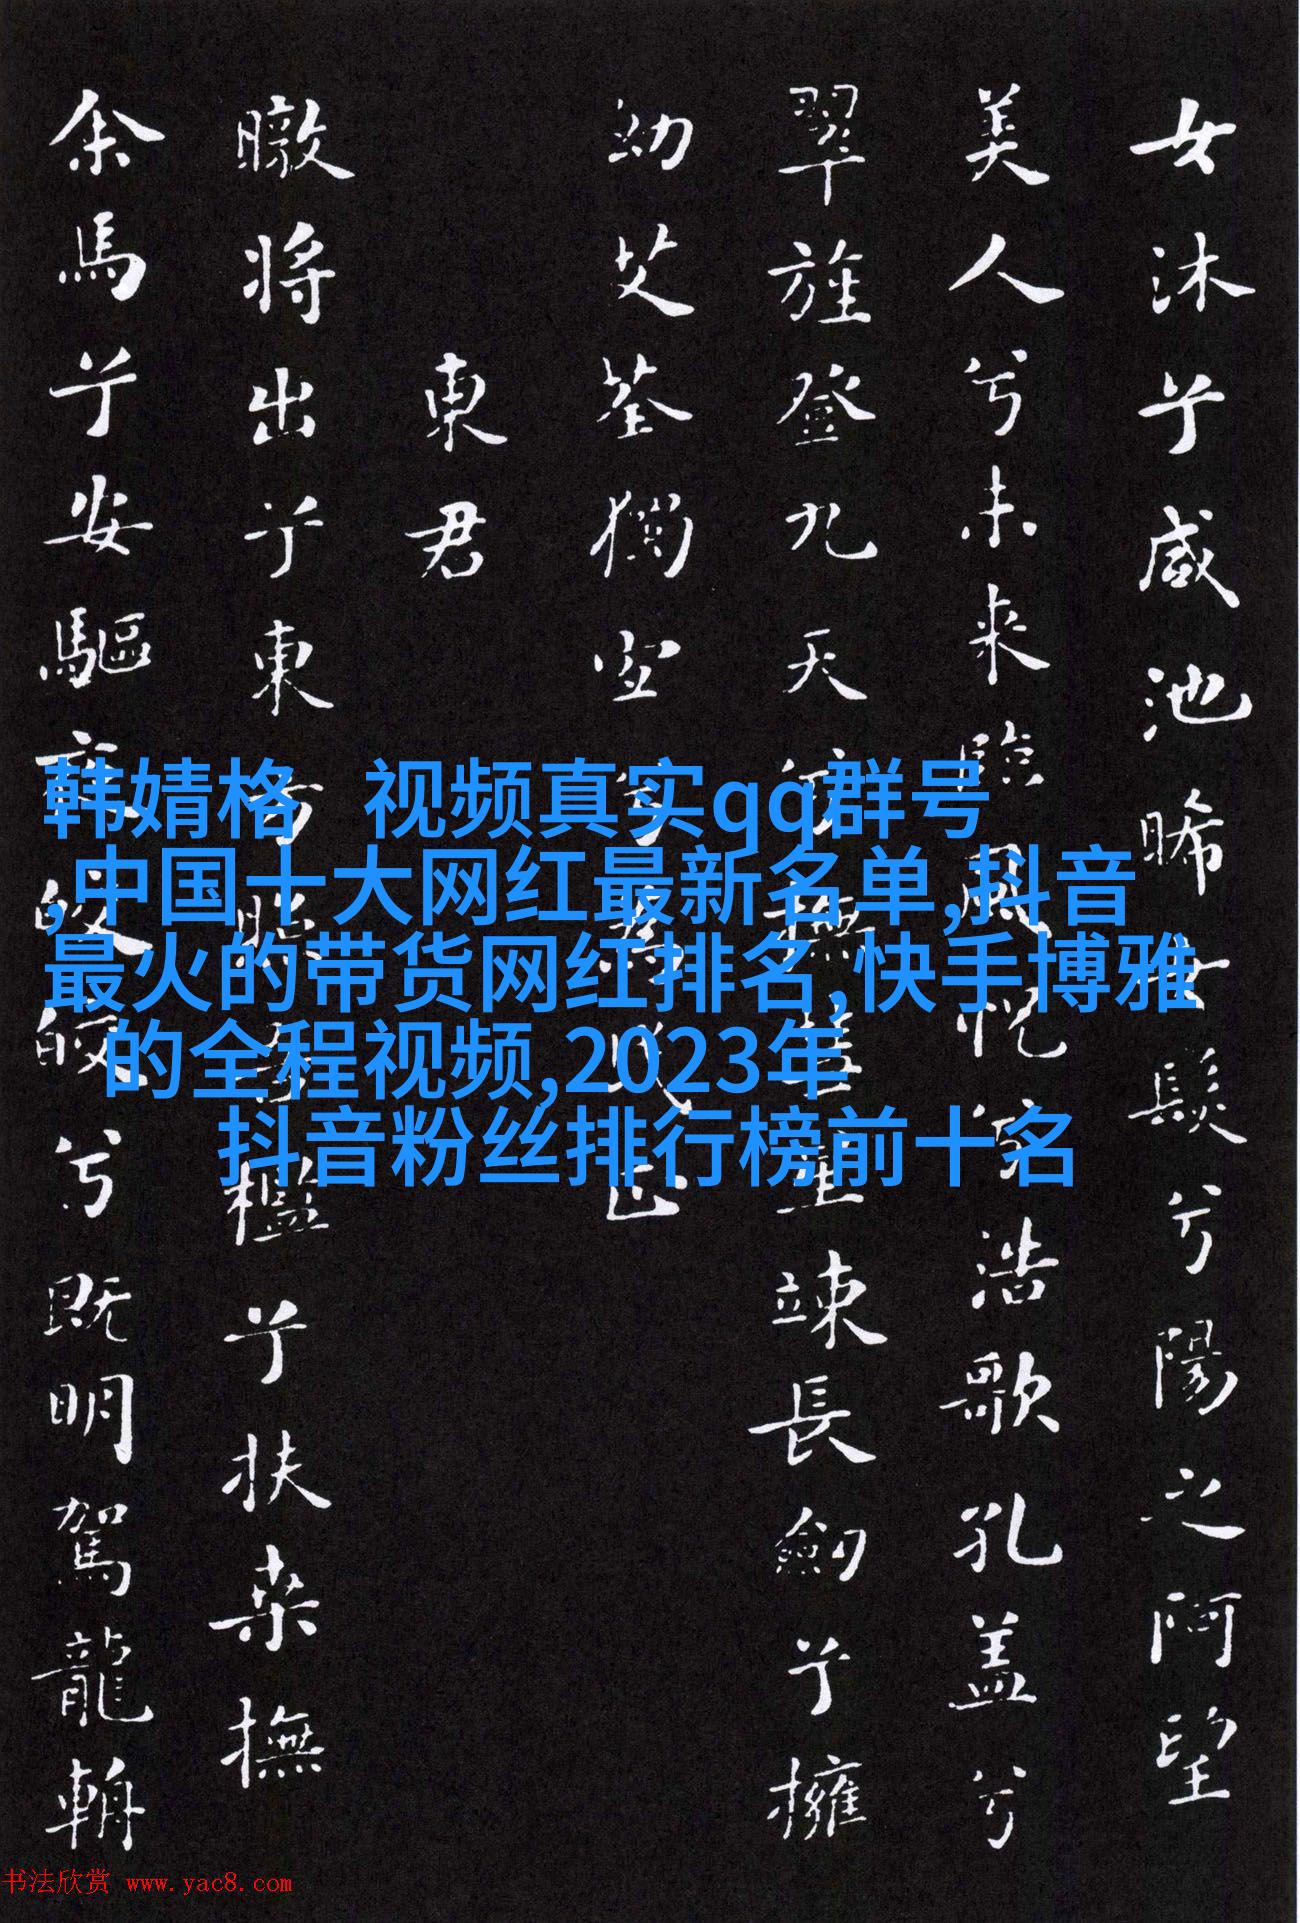 女沐兮咸池晞女髮兮陽之阿望
美人兮未来臨風怳兮浩歌孔盖兮
翠旌登九天兮撫彗星竦長劍兮擁
幼艾荃獨宜兮為民正
東君
暾將出兮東方照吾檻兮扶桑撫
余馬兮安驅夜皎皎兮既明駕龍輈
韩婧格 视频真实qq群号
,中国十大网红最新名单,抖音
最火的带货网红排名,快手博雅
的全程视频,2023年
抖音粉丝排行榜前十名
书法欣赏 www.yac8.com